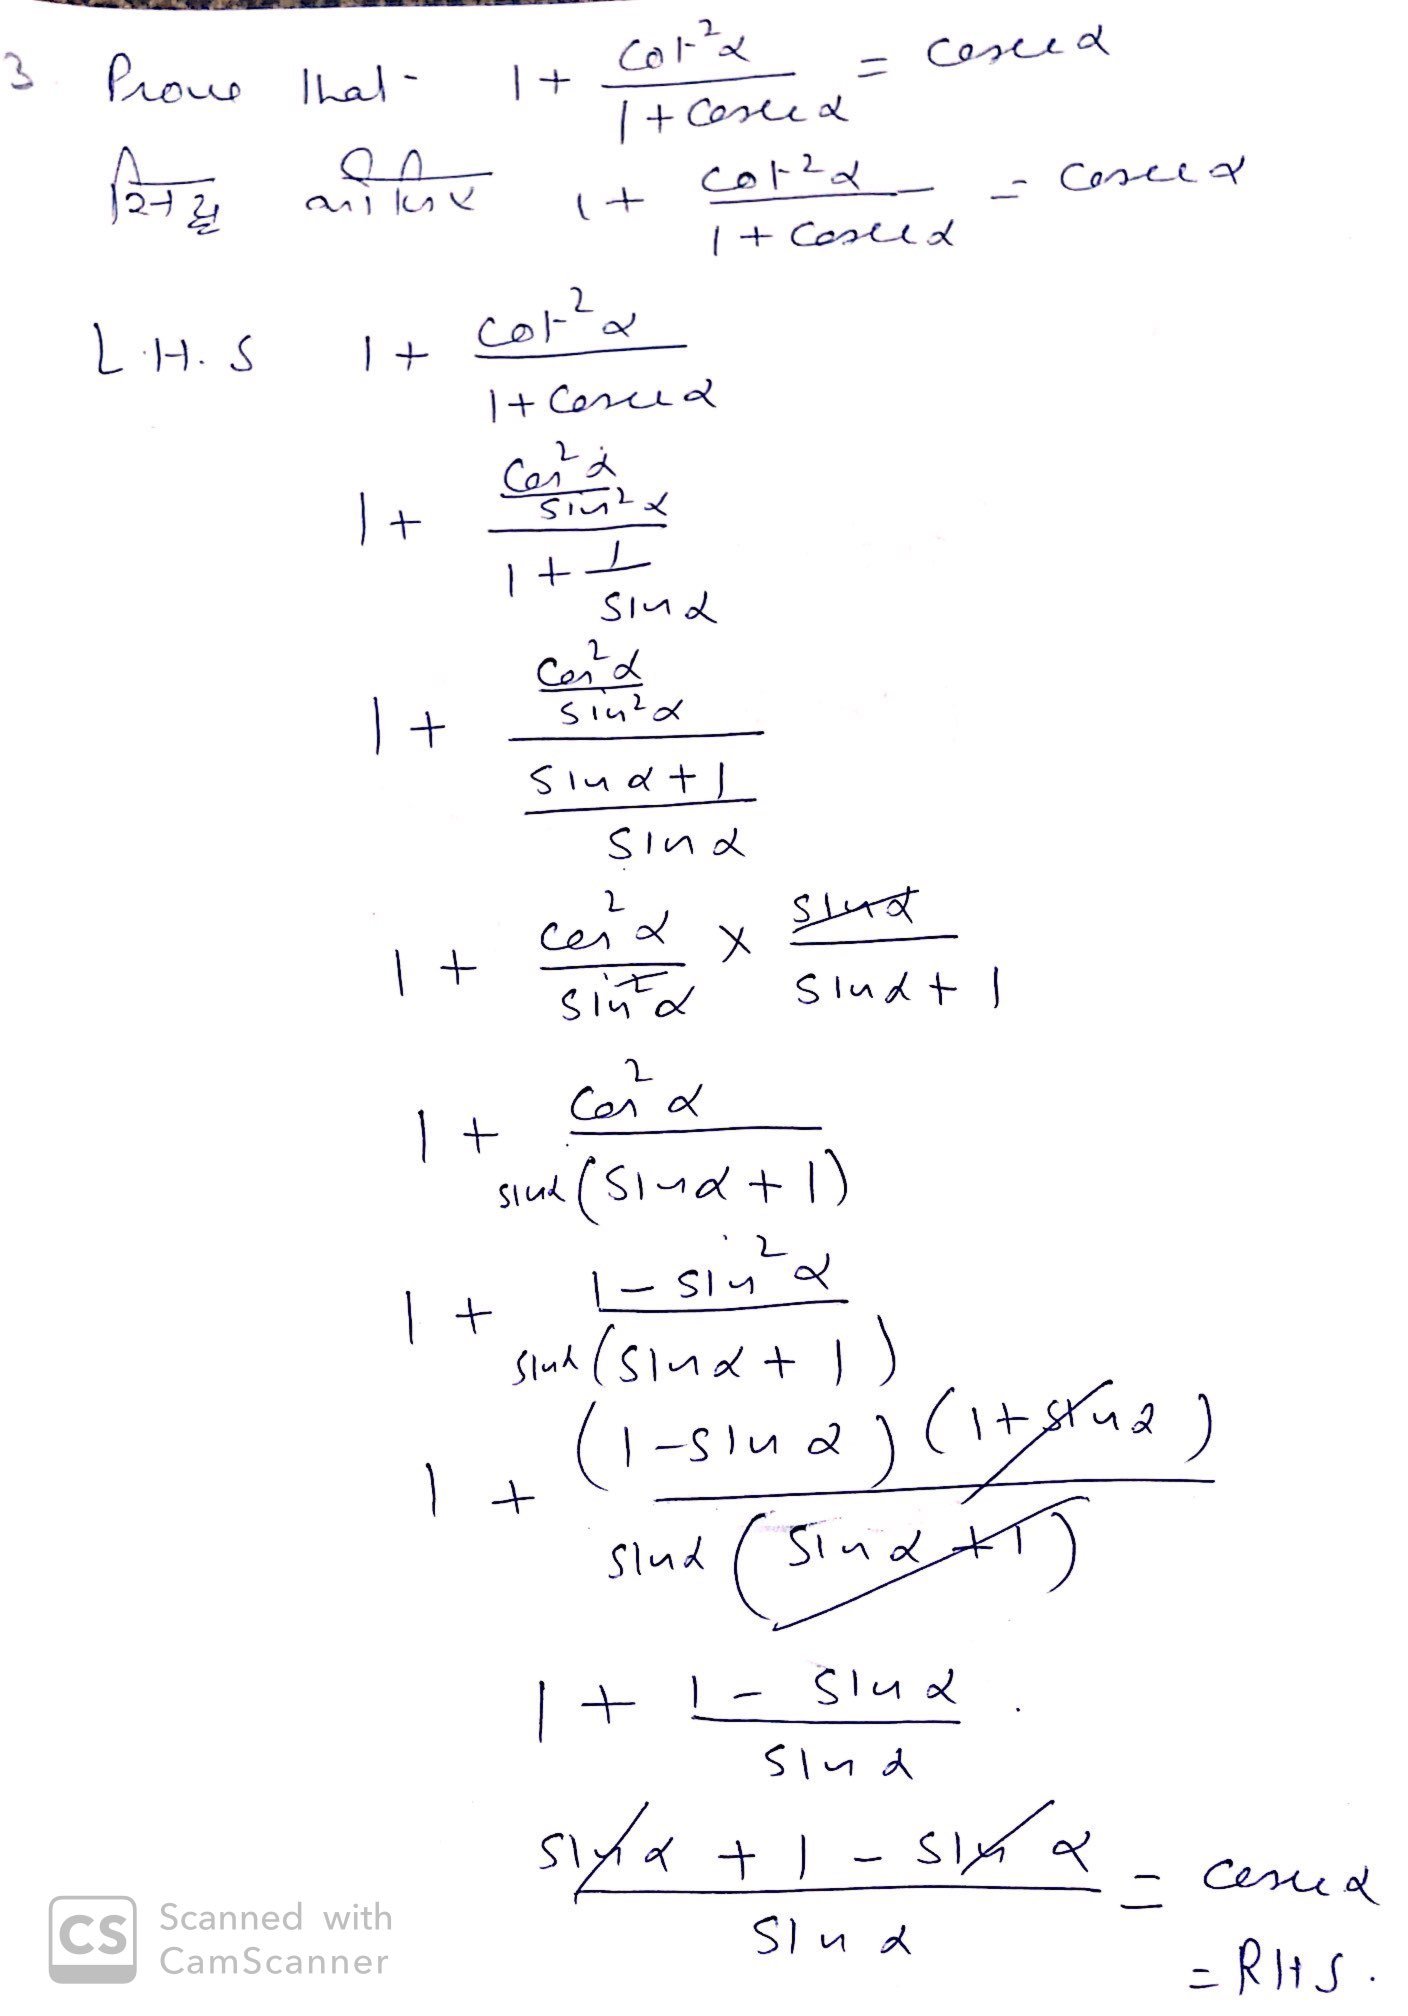 3 Prove that - 1 + cot²α / 1 + cosec α = cosec α
सिद्ध कीजिए 1 + cot²α / 1 + cosec α = cosec α
L.H.S 1 + cot²α / 1 + cosec α
1 + (cos²α / sin²α) / (1 + 1 / sin α)
1 + (cos²α / sin²α) / (sin α + 1 / sin α)
1 + cos²α / sin²α × sin α / sin α + 1
1 + cos²α / sin α (sin α + 1)
1 + 1 - sin²α / sin α (sin α + 1)
1 + (1 - sin α) (1 + sin α) / sin α (sin α + 1)
1 + 1 - sin α / sin α
sin α + 1 - sin α / sin α = cosec α
= RHS.
CS Scanned with
CamScanner